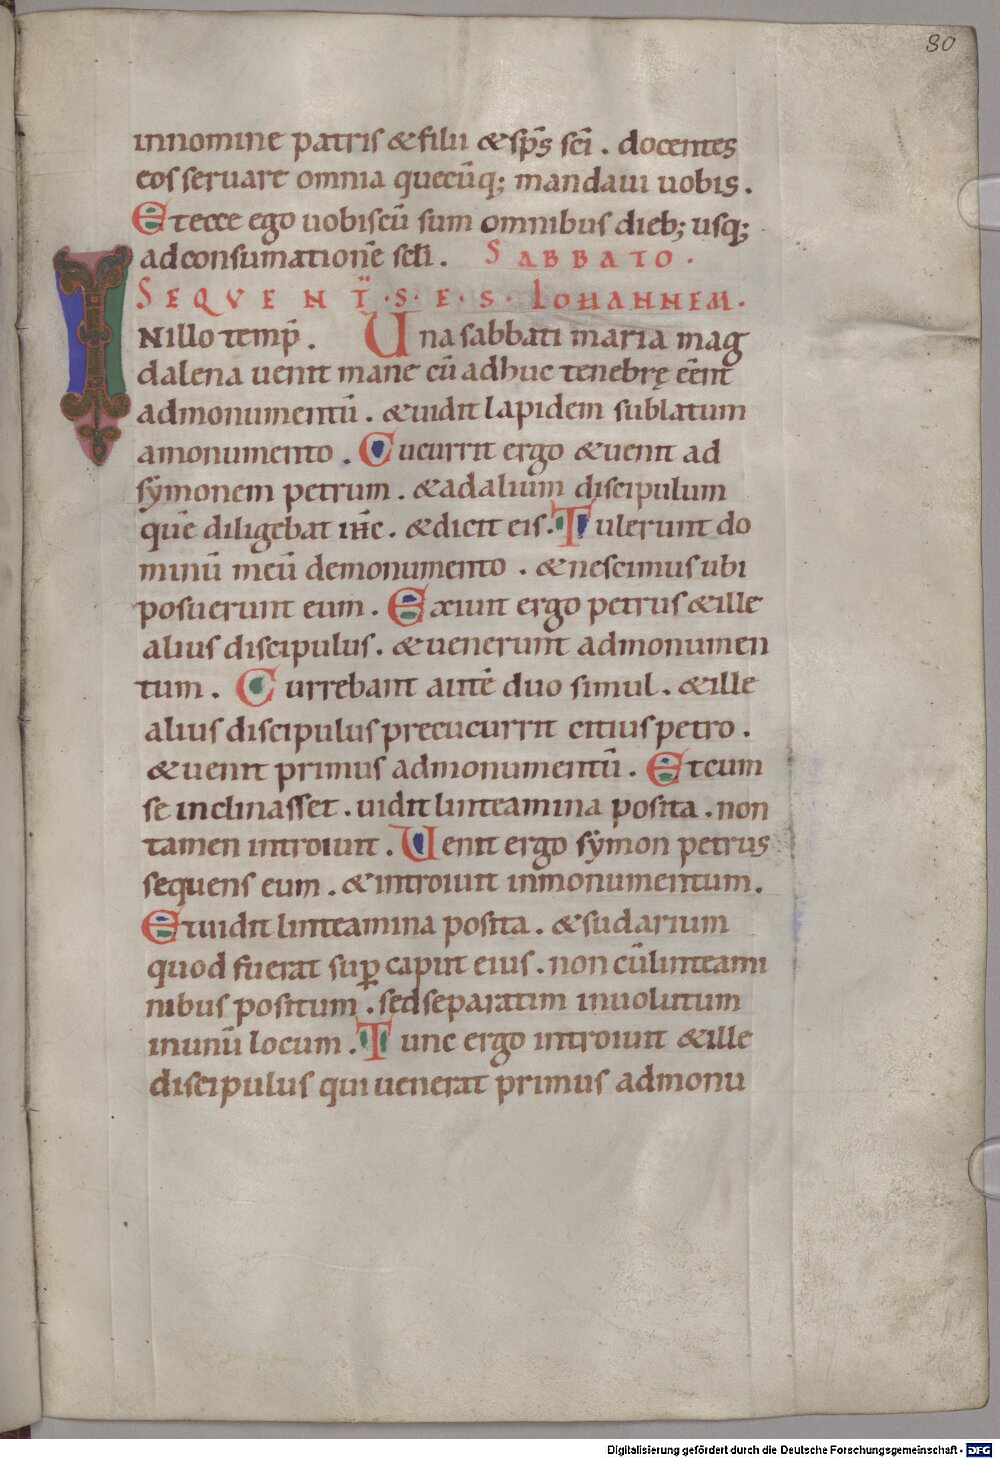 80
innomine patris &filii &sp̄s sc̄i . docentes
eos seruare omnia quecūq; mandaui uobis .
Etecce ego uobiscū sum omnibus dieb; usq;
adconsumationē sc̄li . SABBATO .
SEQVENT̄ .S. E. S. IOHANNEM .
INillo temp̄ . Una sabbati maria mag
dalena uenit mane cū adhuc tenebrę eēnt
admonumentū . &uidit lapidem sublatum
amonumento . Cucurrit ergo &uenit ad
sẏmonem petrum . &adalium discipulum
quē diligebat ih̄c . &dicit eis . Tulerunt do
minū meū demonumento . &nescimus ubi
posuerunt eum . Exiuit ergo petrus &ille
alius discipulus . &uenerunt admonumen
tum . Currebant autē duo simul . &ille
alius discipulus precucurrit citius petro .
&uenit primus admonumentū . Etcum
se inclinasset . uidit linteamina posita . non
tamen introiuit . Uenit ergo sẏmon petrus
sequens eum . &introiuit inmonumentum .
Etuidit linteamina posita . &sudarium
quod fuerat sup̱ caput eius . non cūlinteami
nibus positum . sedseparatim inuolutum
inunū locum . Tunc ergo introiuit &ille
discipulus qui uenerat primus admonu
Digitalisierung gefördert durch die Deutsche Forschungsgemeinschaft - DFG